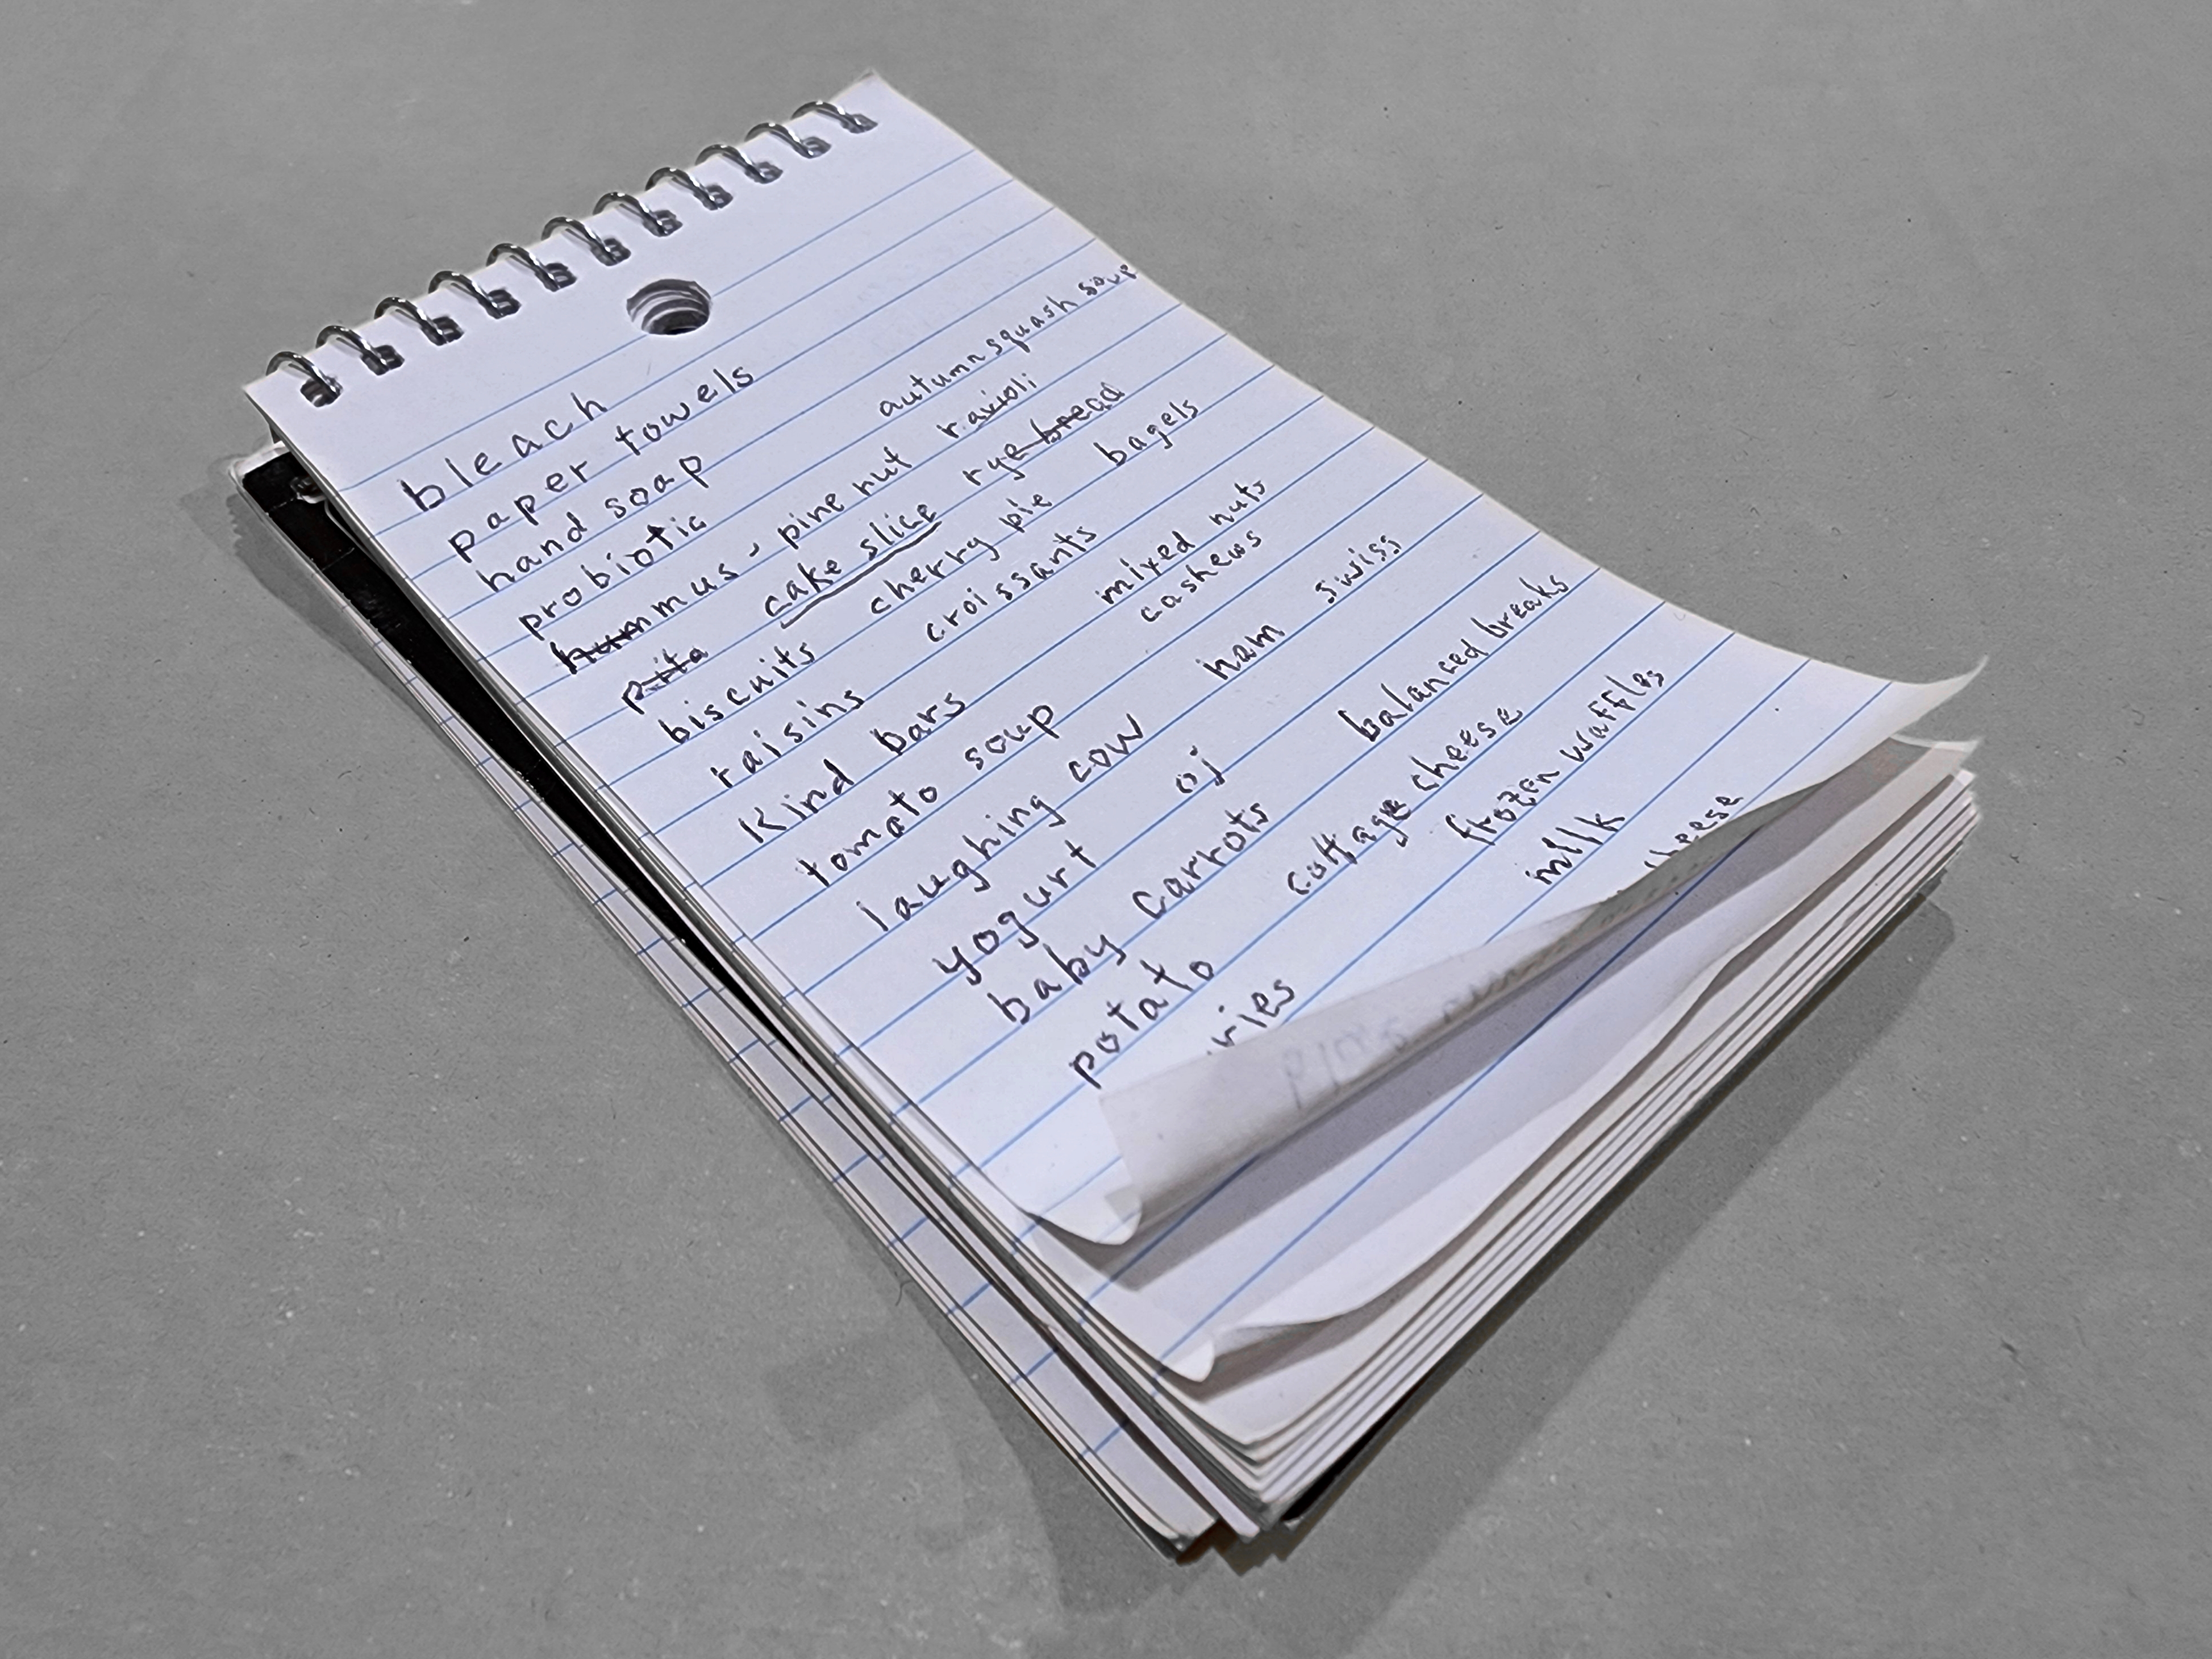 bleach
paper towels
hand soap autumn squash soup
probiotic
hummus - pine nut ravioli
pita cake slice rye bread
biscuits cherry pie bagels
raisins croissants
Kind bars mixed nuts
tomato soup cashews
laughing cow ham swiss
yogurt oj
baby carrots balanced breaks
potato cottage cheese
frozen waffles
milk